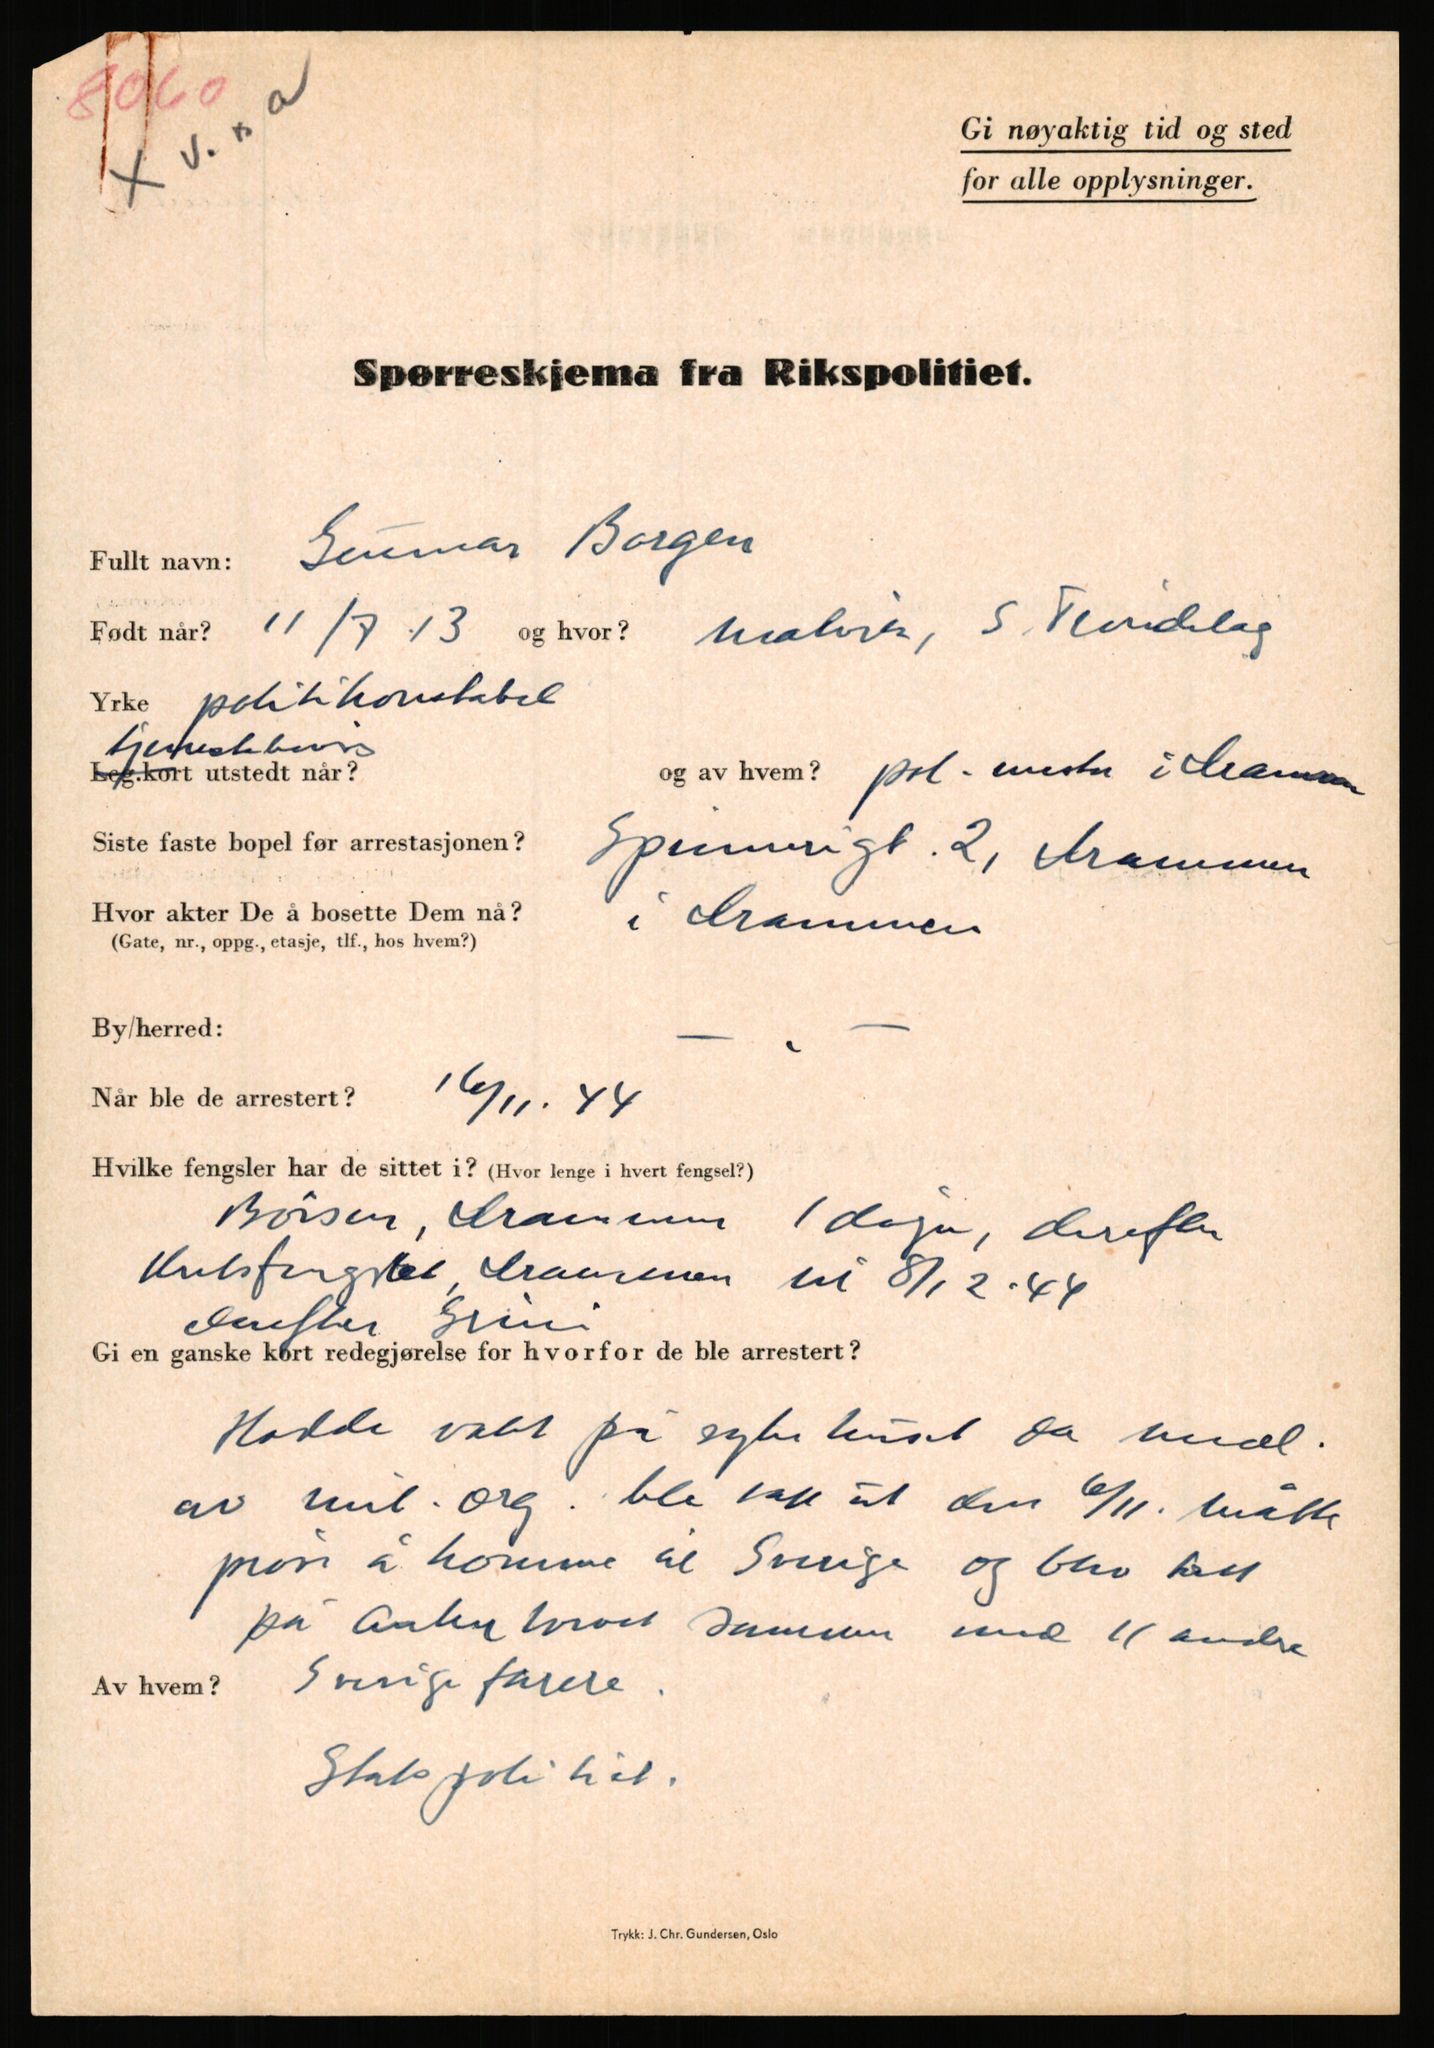 8060
x v. x a
Gi nøyaktig tid og sted
for alle opplysninger.
Spørreskjema fra Rikspolitiet.
Fullt navn: Gunnar Borgen
Født når? 11/7 13 og hvor? Malvik, S. Trøndelag
Yrke politikonstabel
tjenestebevis
Leg.kort utstedt når? og av hvem? pol. mester i Drammen
Siste faste bopel før arrestasjonen? Spinnerigt. 2, Drammen
Hvor akter De å bosette Dem nå? i Drammen
(Gate, nr., oppg., etasje, tlf., hos hvem?)
By/herred: — " —
Når ble de arrestert? 16/11. 44
Hvilke fengsler har de sittet i? (Hvor lenge i hvert fengsel?)
Börsen, Drammen 1 døgn, derefter
Kretsfengslet, Drammen til 8/12.44
derefter Grini
Gi en ganske kort redegjørelse for hvorfor de ble arrestert?
Hadde vakt på sykehuset da medl.
av mil. org. ble tatt ut den 6/11. Måtte
prøve å komme til Sverige og blev tatt
på sammen med 11 andre
Av hvem? Sverigefarere.
Statspolitiet.
Trykk: J. Chr. Gundersen, Oslo